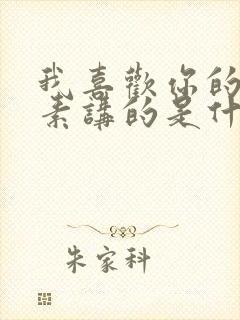 我喜歡你的
素講的是什
朱家科